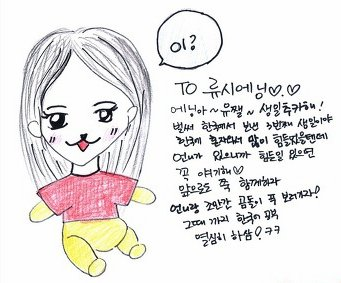 이?
TO 류시에닝♡.♡
에닝아~유쨀~ 생일축카해!
벌써 한국에서 보낸 3번째 생일이야
한국에 혼자와서 많이 힘들었을텐데
언니가 있으니까 힘든일 있으면
꼭 얘기해♡
앞으로도 쭉 함께하자
언니랑 조만간 곰돌이 푹 보러가자!
그때 까지 한국어 공부
열심히 하삼! ㅋㅋ